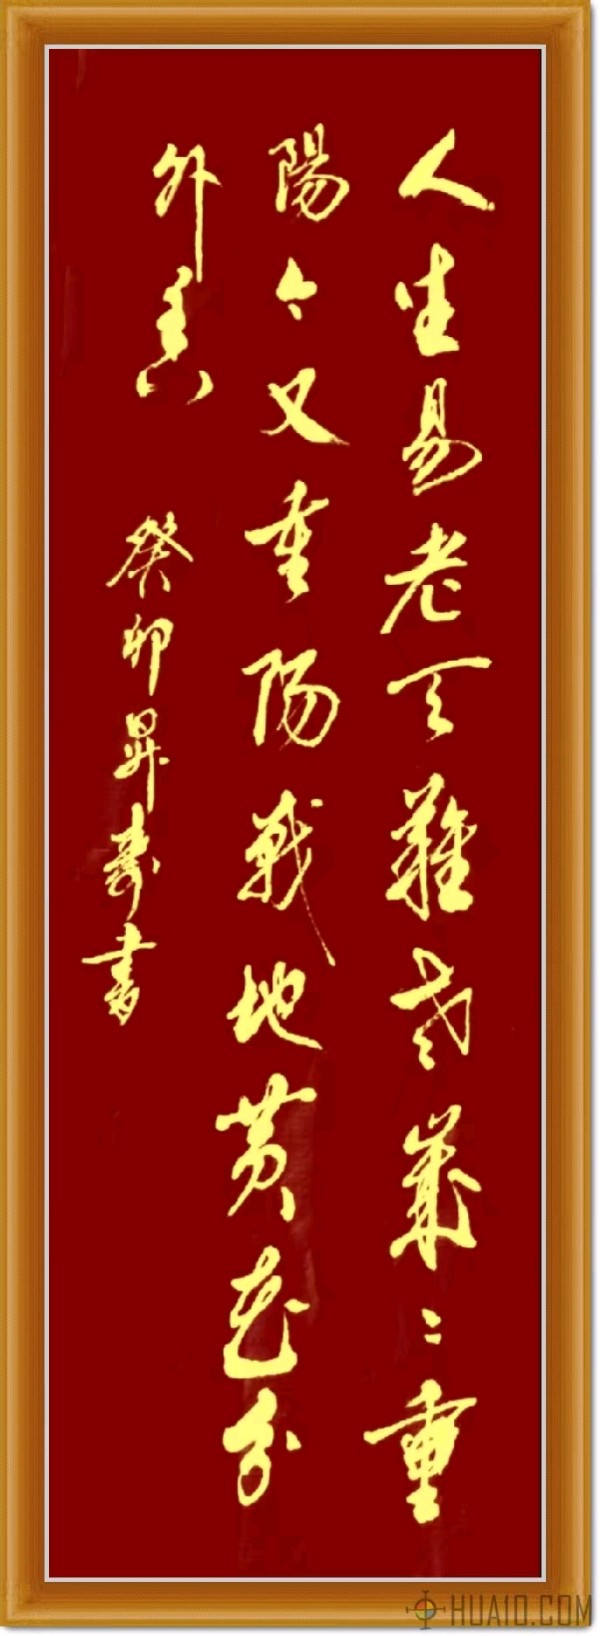 人生易老天難老歲〻重
陽今又重陽戰地黃花分
外香
癸卯昇壽書
HUA10.COM